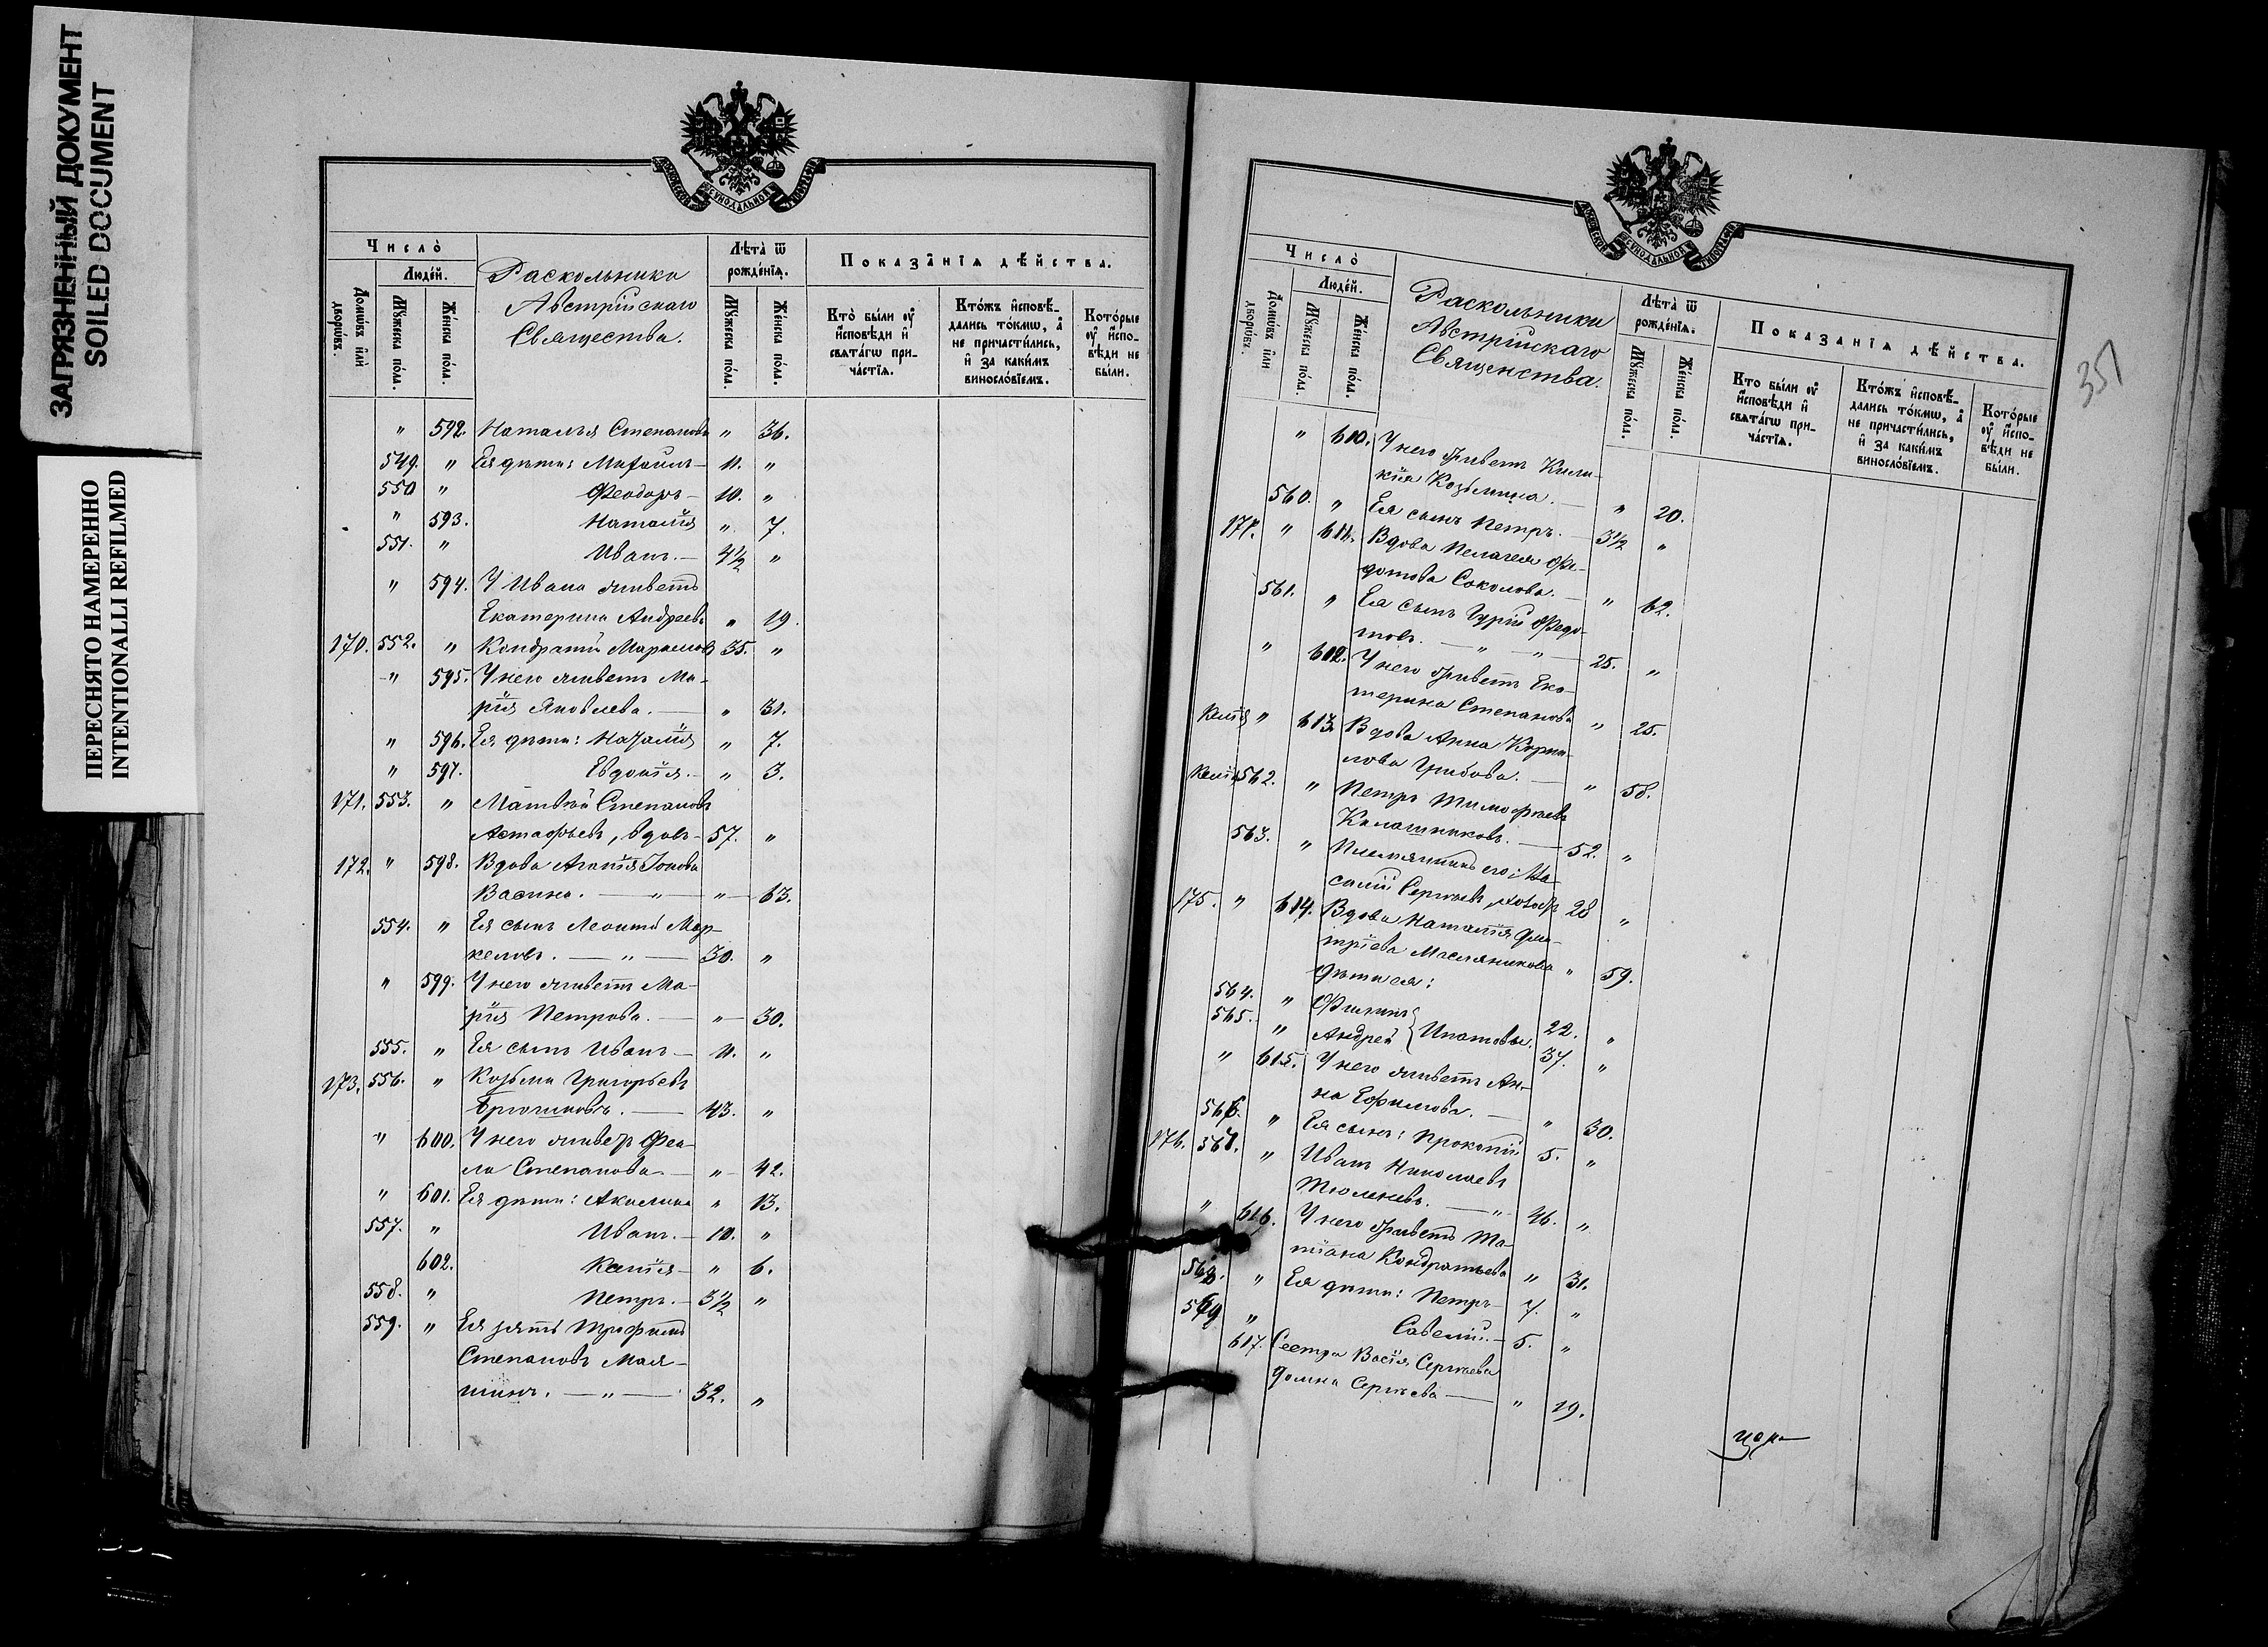 ЗАГРЯЗНЕННЫЙ ДОКУМЕНТ
SOILED DOCUMENT
ПЕРЕСНЯТО НАМЕРЕННО
INTENTIONALLI REFILMED
Число̀
Люде́й.
Домѡ́въ и҆лѝ дворѡ́въ.
Мꙋ́жеска по́ла.
Же́нска по́ла.
Раскольники
Австрійскаго
Священства.
Лѣта̀ ѿ
рожде́нїѧ.
Мꙋ́жеска по́ла.
Же́нска по́ла.
Показа̑нїѧ дѣ́йства.
Кто̀ бы́ли оу҆
и҆сповѣди и҆
свѧта́гѡ при-
ча́стїѧ.
Кто́жъ и҆сповѣ-
дались то́кмѡ, а҆
не причасти́лись,
и҆ за каки́мъ
винослов́їемъ.
Кото́рые
оу҆ и҆спо-
вѣди не
бы́ли.
" 592. Наталья Степанова " 36.
549. " Ея дѣти: Михаилъ — 11. "
550 " Феодоръ — 10. "
" 593. Наталія " 7.
551. " Иванъ. — 4½ "
" 594. У Ивана живетъ
Екатерина Андреева " 19.
170. 552. " Кондратій 35. "
" 595. У него живетъ Ма-
рія Яковлева. — " 31.
" 596. Ея дѣти: Наталія " 7.
" 597. Евдокія. — " 3.
171. 553. " Матвѣй Степановъ
Астафьевъ, вдов — 57. "
172. " 598. Вдова Агапія Іонова
Васина. — " — " — 63.
554. " Ея сынъ Леонтій Мар-
келовъ. — " — 30. "
" 599. У него живетъ Ма-
рія Петрова. — " — 30.
555. " Ея сынъ Иванъ — 11. "
173. 556. " Козьма Григорьевъ
43. "
" 600. У него живетъ Фек-
ла Степанова — " — 42.
" 601. Ея дѣти: Акилина " 13.
557. " Иванъ. — 10. "
602. Капія — " 6.
558. " Петръ. — 3½ "
559. " Ея зять Трофимъ
Степановъ Мал-
шинъ. — " — 32. "
351
Число̀
Люде́й.
Домѡ́въ и҆лѝ дворѡ́въ.
Мꙋ́жеска по́ла.
Же́нска по́ла.
Раскольники
Австрійскаго
Священства.
Лѣта̀ ѿ
рожде́нїѧ.
Мꙋ́жеска по́ла.
Же́нска по́ла.
Показа̑нїѧ дѣ́йства.
Кто бы́ли оу҆
и҆сповѣди и҆
свѧта́гѡ при-
ча́стїѧ.
Кто́жъ и҆сповѣ-
дались то́кмѡ, а҆
не причасти́лись,
и҆ за каки́мъ
винослов́їемъ.
Кото́рые
оу҆ и҆спо-
вѣди не
бы́ли.
" 610. У него живетъ Кили-
кія Козьмина. — " 20.
560. " Ея сынъ Петръ. — 3½ "
174. " 611. Вдова Пелагея Фе-
дотова Соколова. — " 62.
561. " Ея сынъ Гурій Федо-
товъ. — " — " — 25. "
" 612. У него живетъ Ека-
терина Степанова " 25.
Келія " 613. Вдова Анна Корни-
лова Грибова. — " 58.
Келія 562. " Петръ Тимофѣевъ
Калашниковъ. — 52. "
563. " Племянникъ его: Ва-
силій Сергѣевъ, холост 28 "
175. " 614. Вдова Наталія Дми-
тріева Масленикова " 59.
Дѣти ея:
564. " Филипъ 22. "
565. " Андрей } Ипатовы. 37. "
" 615. У него живетъ Ан-
на Ефимова. — " 30.
566. " Ея сынъ: Прокопій 5. "
176. 567. " Иванъ Николаевъ
Тюленевъ. — " 46. "
" 616. У него живетъ Та-
тіана Кондратьева " 31.
568. " Ея дѣти: Петръ — 7. "
569 " Савелій. — 5. "
617. Сестра Васія Сергѣева
Домна Сергѣева — " 19.